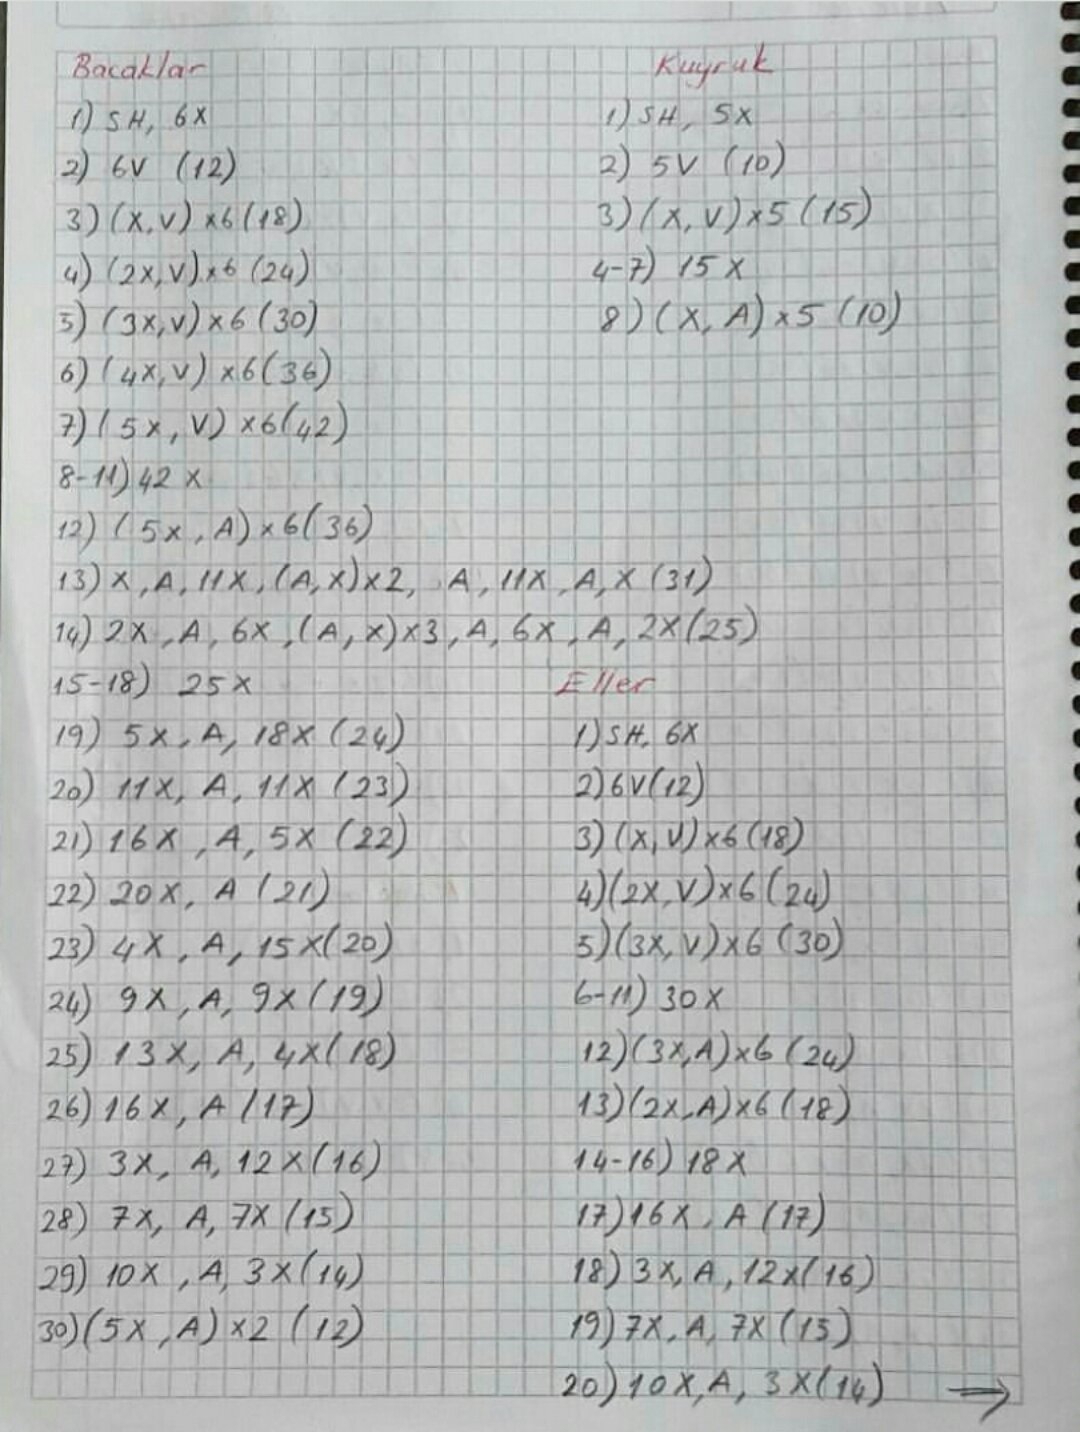 Bacaklar
1) SH, 6X
2) 6V (12)
3) (X,V) x6 (18)
4) (2X,V) x6 (24)
5) (3X,V) x6 (30)
6) (4X,V) x6 (36)
7) (5X, V) x6 (42)
8-11) 42 X
12) (5X, A) x6 (36)
13) X, A, 11X, (A, X) x2, A, 11X, A, X (31)
14) 2X, A, 6X, (A, X) x3, A, 6X, A, 2X (25)
15-18) 25X
19) 5X, A, 18X (24)
20) 11X, A, 11X (23)
21) 16X, A, 5X (22)
22) 20X, A (21)
23) 4X, A, 15X (20)
24) 9X, A, 9X (19)
25) 13X, A, 4X (18)
26) 16X, A (17)
27) 3X, A, 12X (16)
28) 7X, A, 7X (15)
29) 10X, A, 3X (14)
30) (5X, A) x2 (12)
Kuyruk
1) SH, 5X
2) 5V (10)
3) (X, V) x5 (15)
4-7) 15 X
8) (X, A) x5 (10)
Eller
1) SH, 6X
2) 6V (12)
3) (X, V) x6 (18)
4) (2X, V) x6 (24)
5) (3X, V) x6 (30)
6-11) 30 X
12) (3X, A) x6 (24)
13) (2X, A) x6 (18)
14-16) 18 X
17) 16X, A (17)
18) 3X, A, 12X (16)
19) 7X, A, 7X (15)
20) 10X, A, 3X (14) →